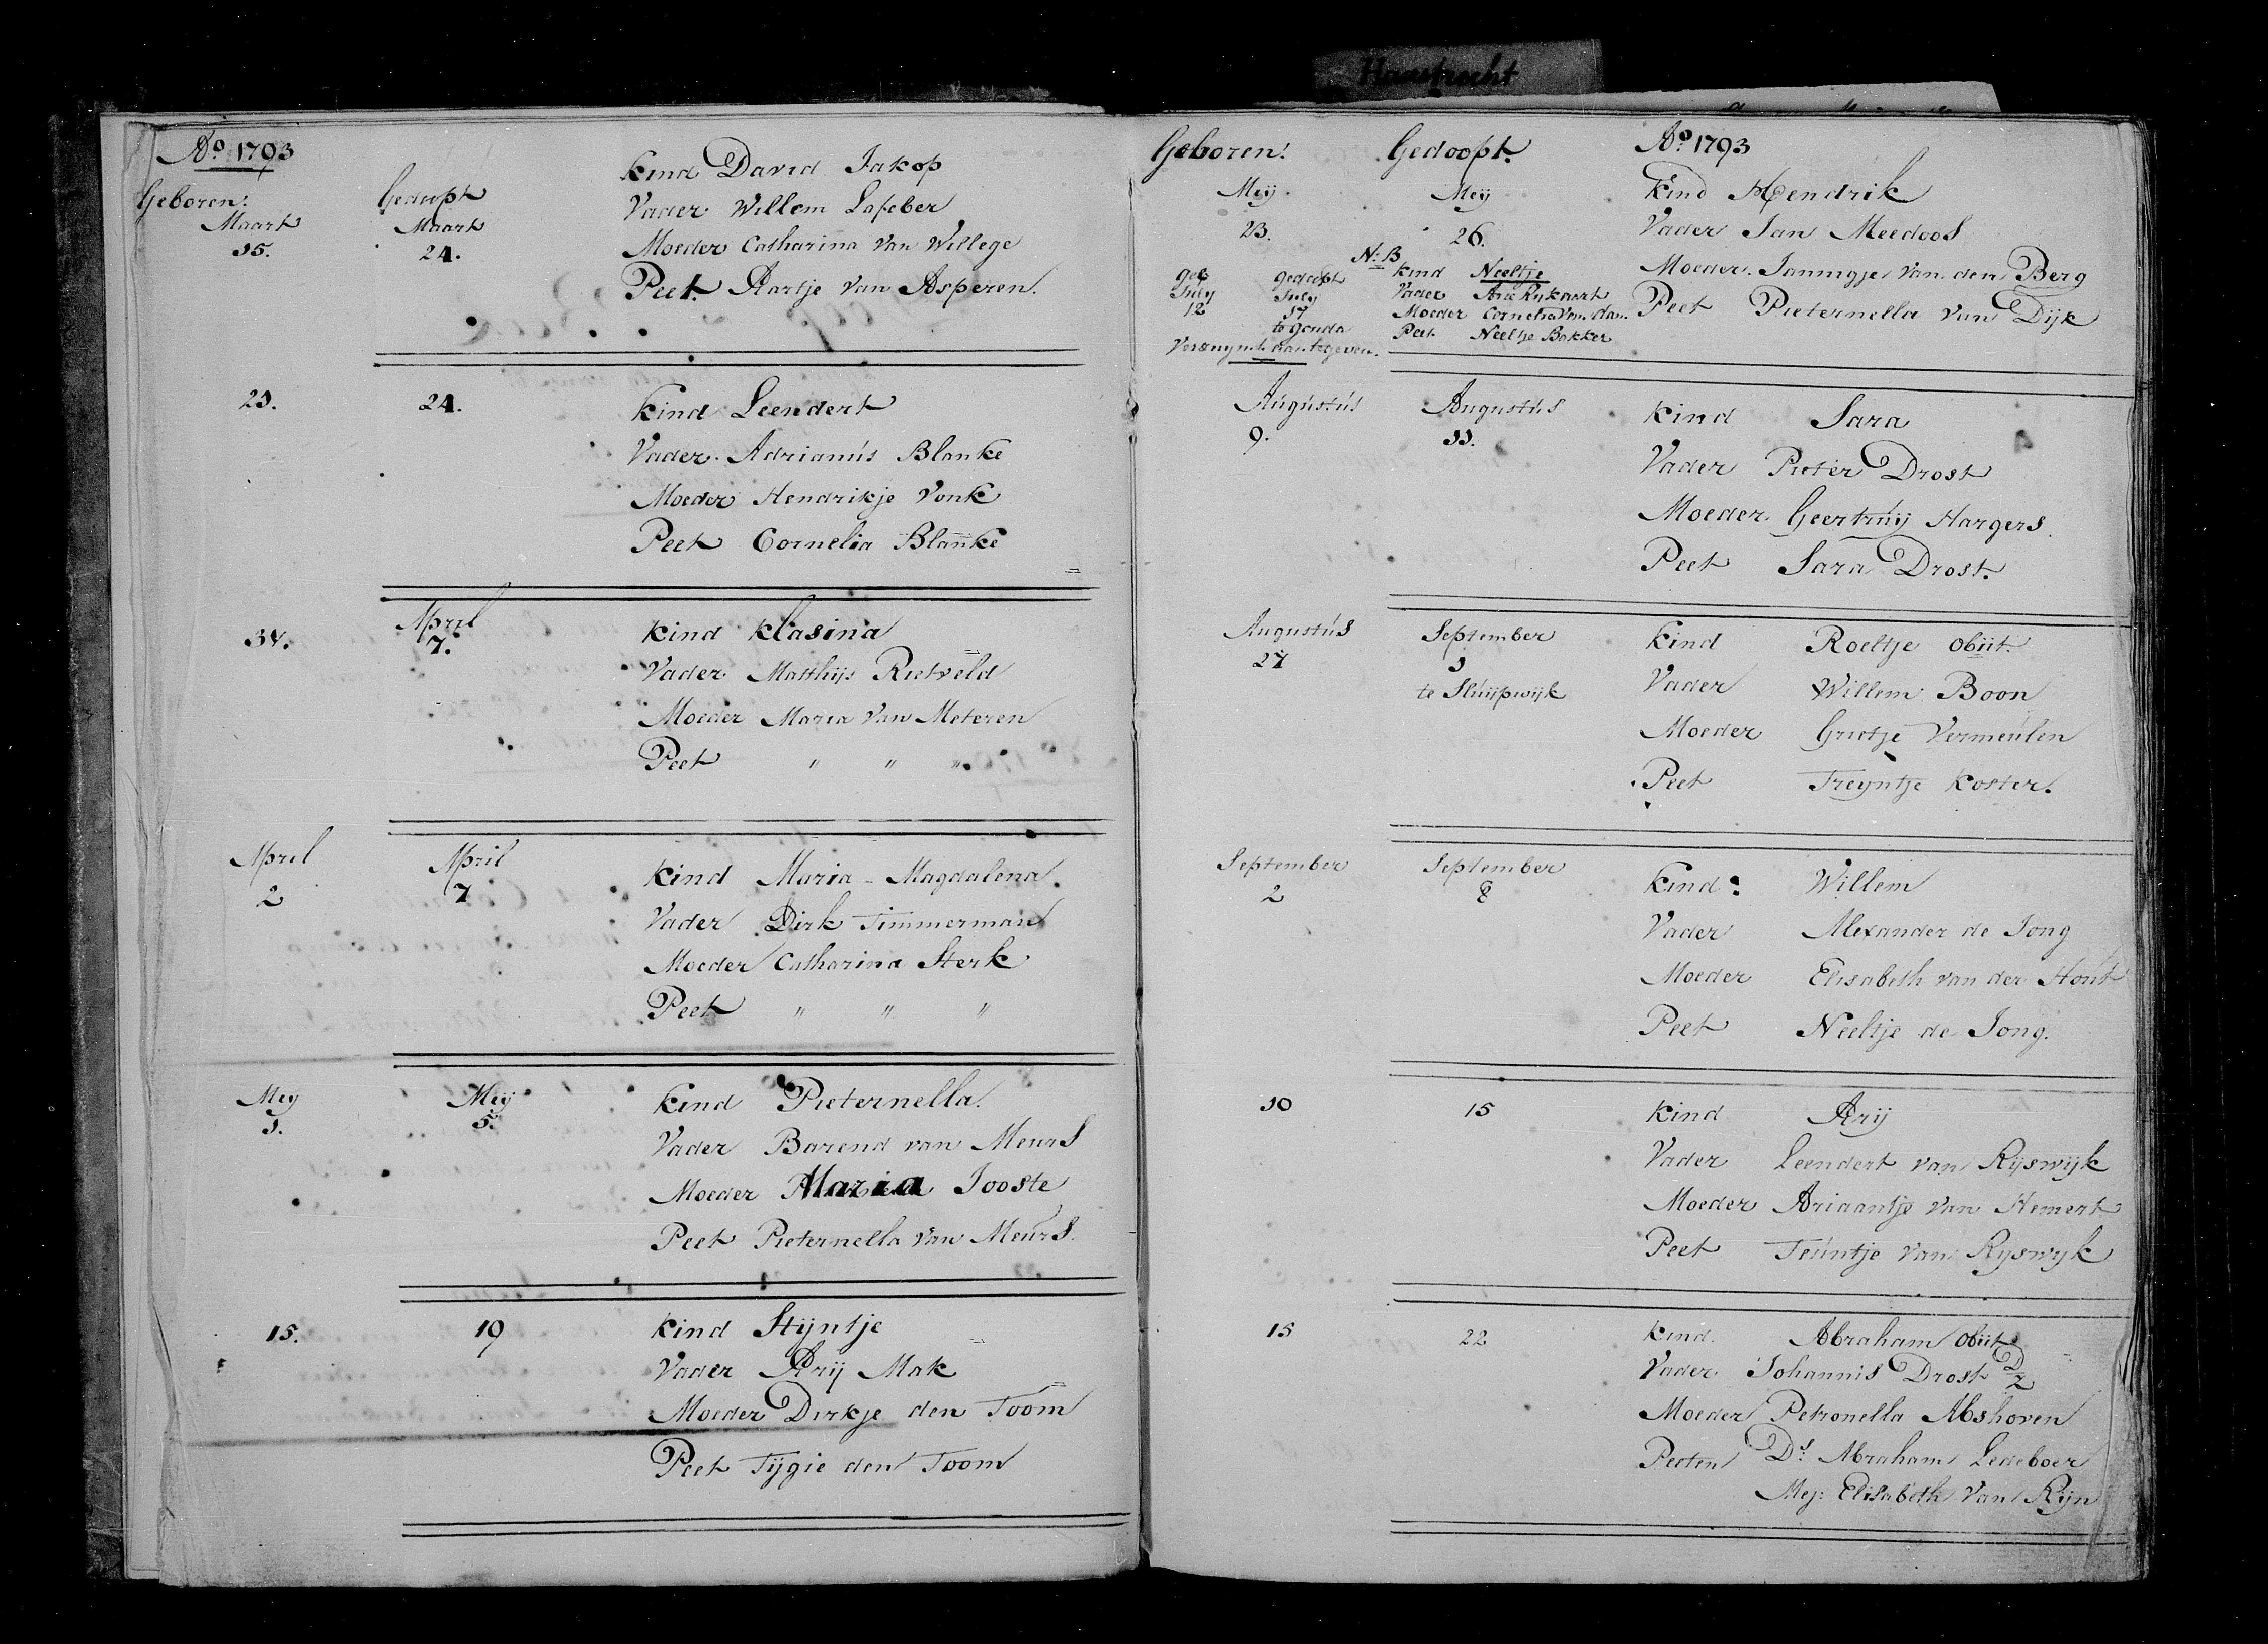 Haastrecht
Aº 1793
Geboren: Gedoopt
Maart Maart
15. 24.
Kind David Jakop
Vader Willem Lafeber
Moeder Catharina Van Willege
Peet. Aartje Van Asperen.
21. 24.
Kind Leendert
Vader Adrianús Blanke
Moeder Hendrikje Vonk
Peet Cornelia Blanke
April
31. 7.
Kind Klasina
Vader Matthijs Rietveld
Moeder Maria Van Meteren
Peet " " "
April April
2 7
Kind Maria - Magdalena
Vader Dirk Timmerman
Moeder Catharina Sterk
Peet " " "
Meij Meij
1. 5.
Kind Pieternella
Vader Barend van Meurs
Moeder Maria Jooste
Peet Pieternella Van Meúrs.
15. 19
Kind Stijntje
Vader Arij Mak
Moeder Dirkje den Toom
Peet Tijgie den Toom
Geboren: Gedoopt. Aº 1793
Meij Meij
23. 26.
Kind Hendrik
Vader Jan Meedoos
Moeder Jannigje Van den Berg
Peet Pieternella Van Dijk
N:B
geb gedoopt Kind Neeltje
July July Vader Arie Rijkaart
12 17 Moeder Cornelia Van dam
te gouda Peet Neeltje Bakker
Versuymt aan tegeven.
Augústús Augustús
9. 11.
Kind Sara
Vader Pieter Drost
Moeder Geertrúij Hargers.
Peet Sara Drost.
Augustús September
27 1
te Slúijpwijk
Kind Roeltje Obiit.
Vader Willem Boon
Moeder Grietje Vermeúlen
Peet Treijntje Koster.
September September
2 8
Kind: Willem
Vader Alexander de Jong
Moeder Elisabeth van der Hout
Peet Neeltje de Jong.
10 15
Kind Arij
Vader Leendert van Rijswijk
Moeder Ariaantje Van Hemert
Peet Teúntje Van Rijswijk
15 22
Kind. Abraham Obiit
Vader Johannis Drost D/2
Moeder Petronella Abshoven
Peeten Ds. Abraham Ledeboer
Mej: Elisabeth Van Rijn